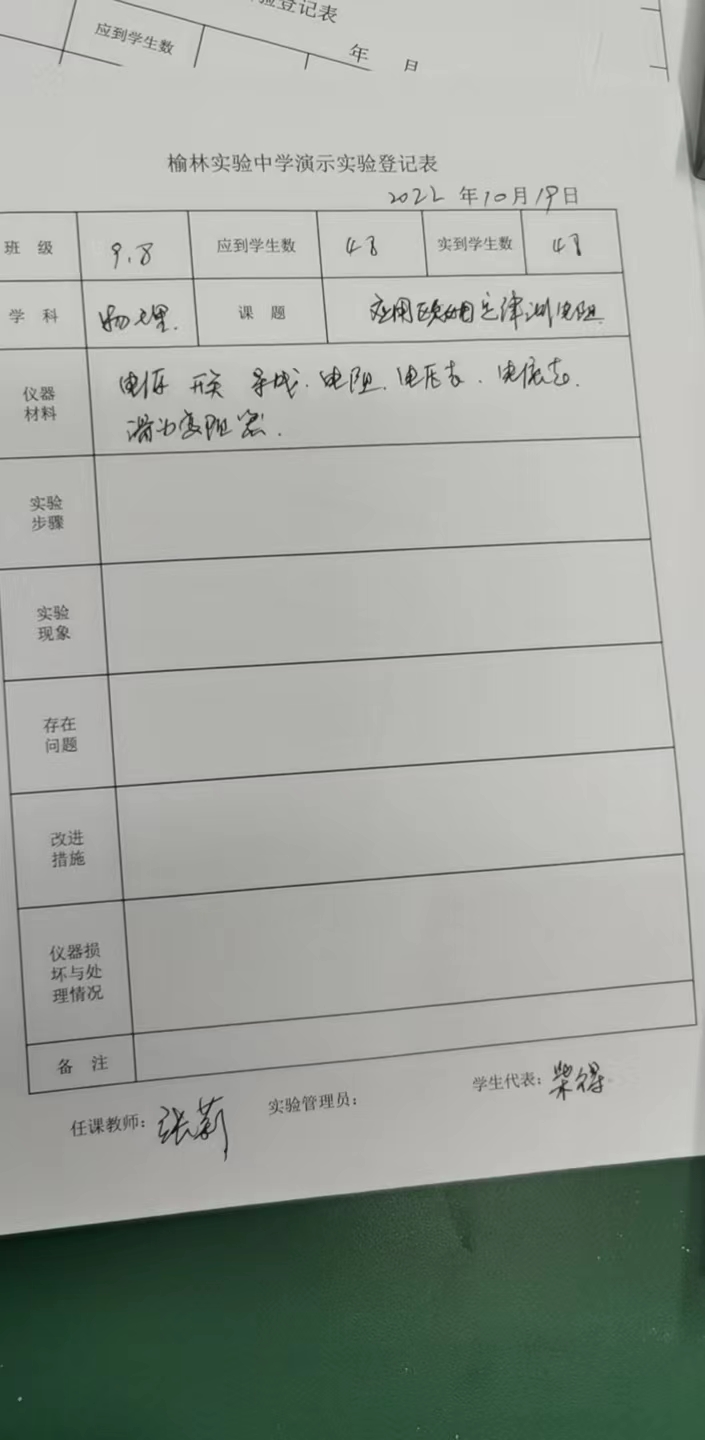 验登记表
应到学生数
年 月
榆林实验中学演示实验登记表
2022 年 10 月 19 日
班 级 9.8 应到学生数 48 实到学生数 48
学 科 物理. 课 题 应用欧姆定律测电阻
仪器
材料
电源 开关 导线. 电阻. 电压表. 电流表.
滑动变阻器.
实验
步骤
实验
现象
存在
问题
改进
措施
仪器损
坏与处
理情况
备 注
任课教师: 张莉 实验管理员: 学生代表: